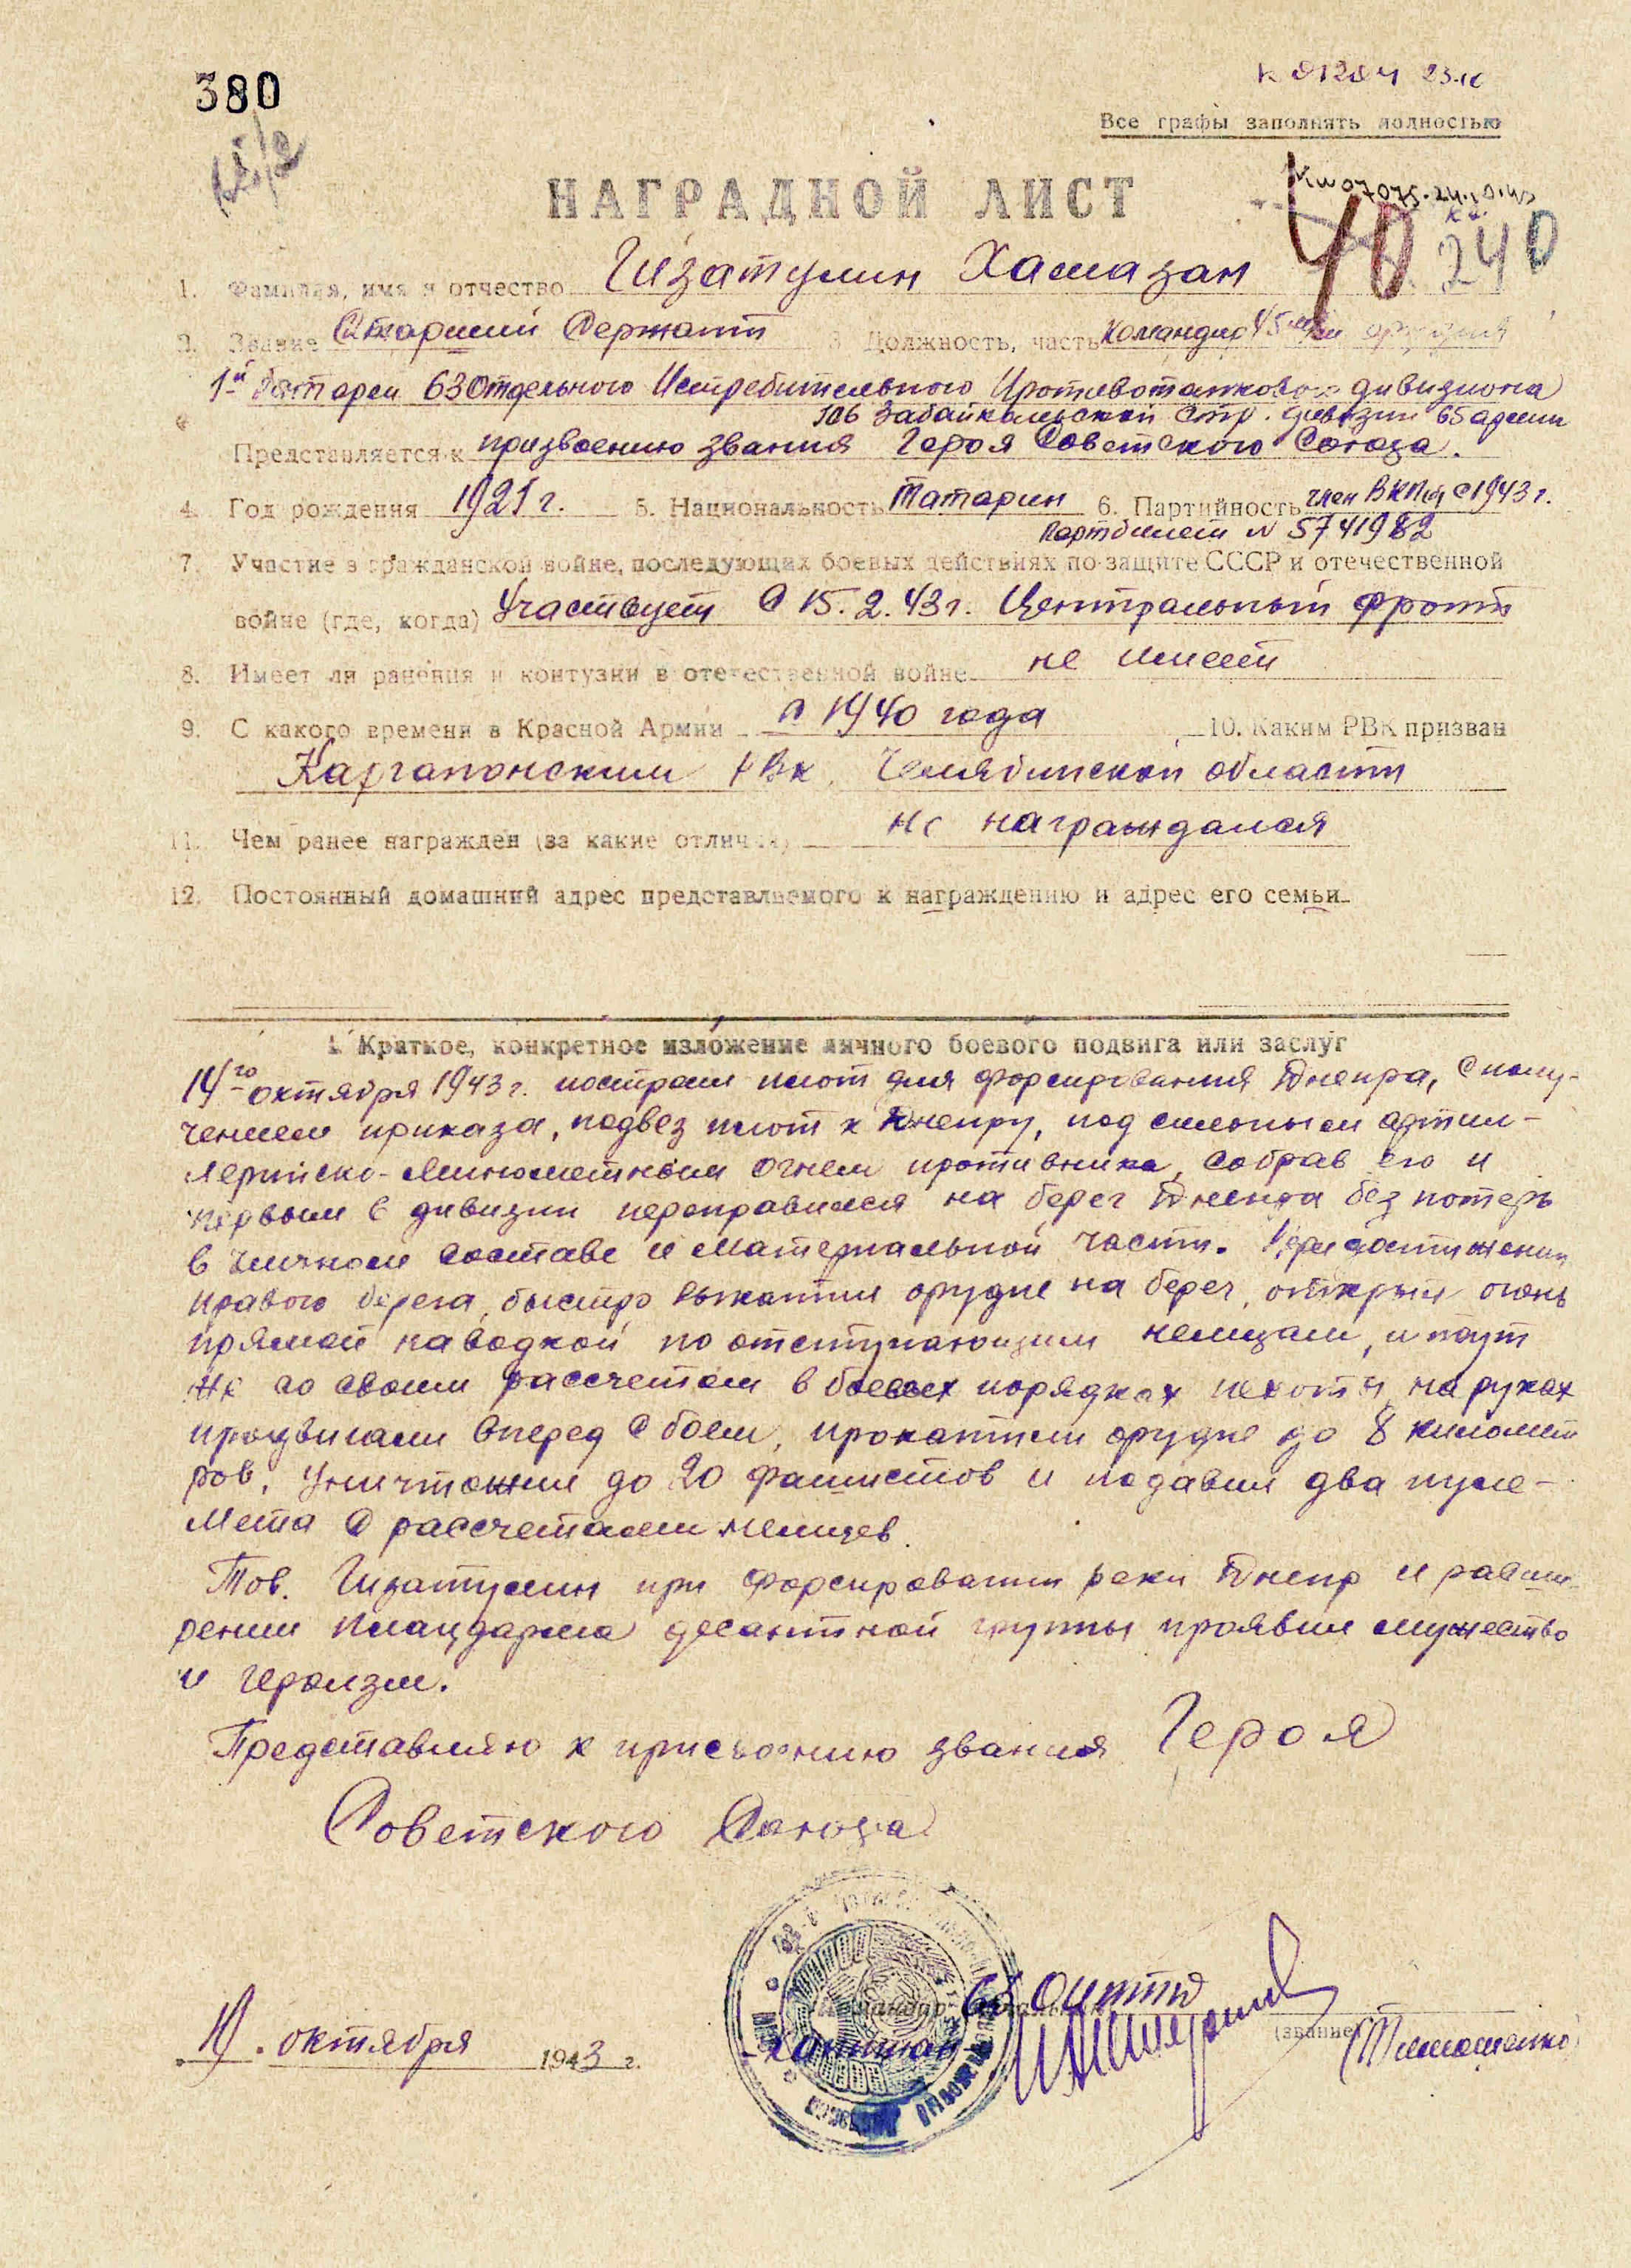 380
К 01204 23.10
Все графы заполнять полностью
НАГРАДНОЙ ЛИСТ
40
240
1. Фамилия, имя и отчество Гизатулин Хамазан
2. Звание Старший Сержант 3. Должность, часть Командир 45 мм орудия
1й батареи 63 Отдельного Истребительного Противотанкового дивизиона
106 Забайкальской стр. дивизии 65 армии
Представляется к призвоению звания Героя Советского Союза.
4. Год рождения 1921 г. 5. Национальность Татарин 6. Партийность член ВКП(б) с 1943 г.
Партбилет № 5741982
7. Участие в гражданской войне, последующих боевых действиях по защите СССР и отечественной
войне (где, когда) Участвует с 15.2.43 г. Центральный фронт
8. Имеет ли ранения и контузии в отечественной войне не имеет
9. С какого времени в Красной Армии с 1940 года 10. Каким РВК призван
Каргапонским РВК, Челябинской области
11. Чем ранее награжден (за какие отличия) не награждался
12. Постоянный домашний адрес представляемого к награждению и адрес его семьи
1. Краткое, конкретное изложение личного боевого подвига или заслуг
14го октября 1943 г. построил плот для форсирования Днепра, с полу-
чением приказа, подвез плот к Днепру, под сильным артил-
лерийско-минометным огнем противника, собрав его и
первым в дивизии переправился на берег Днепра без потерь
в личном составе и материальной части. При достижении
правого берега, быстро выкатил орудие на берег, открыл огонь
прямой наводкой по отступающим немцам, и тут
же со своим рассчетом в боевых порядках пехоты на руках
продвигали вперед с боем, прокатили орудие до 8 километ
ров, уничтожил до 20 фашистов и подавил два пуле-
мета с рассчетами немцев.
Тов. Гизатулин при форсировании реки Днепр и расши-
рении плацдарма десантной группы проявил мужество
и героизм.
Представляю к присвоению звания Героя
Советского Союза
Командир 63 ОИПТД
капитан
(звание)
(Тимошенко)
19. октября 1943 г.